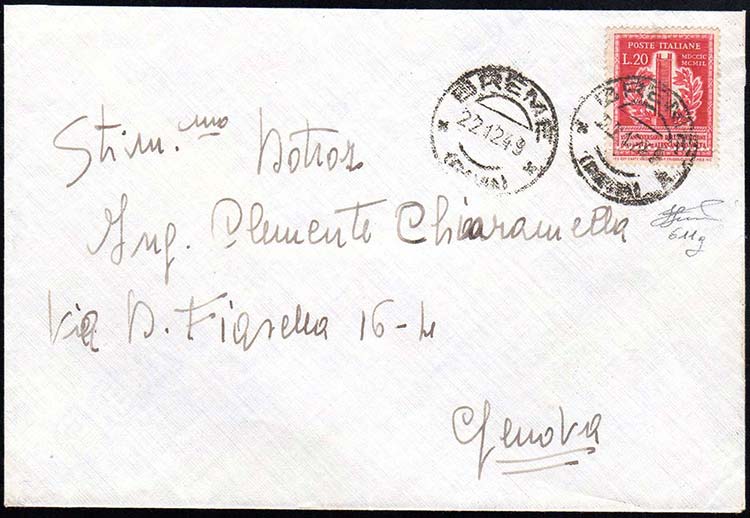 POSTE ITALIANE
L.20
MDCCIC
MCMIL
BREME
22.12.49
(PAVIA)
BREME
(PAVIA)
Stim.mo Dottor
Ing. Clemente Chiaramella
Via D. Fiasella 16-4
Genova
611g